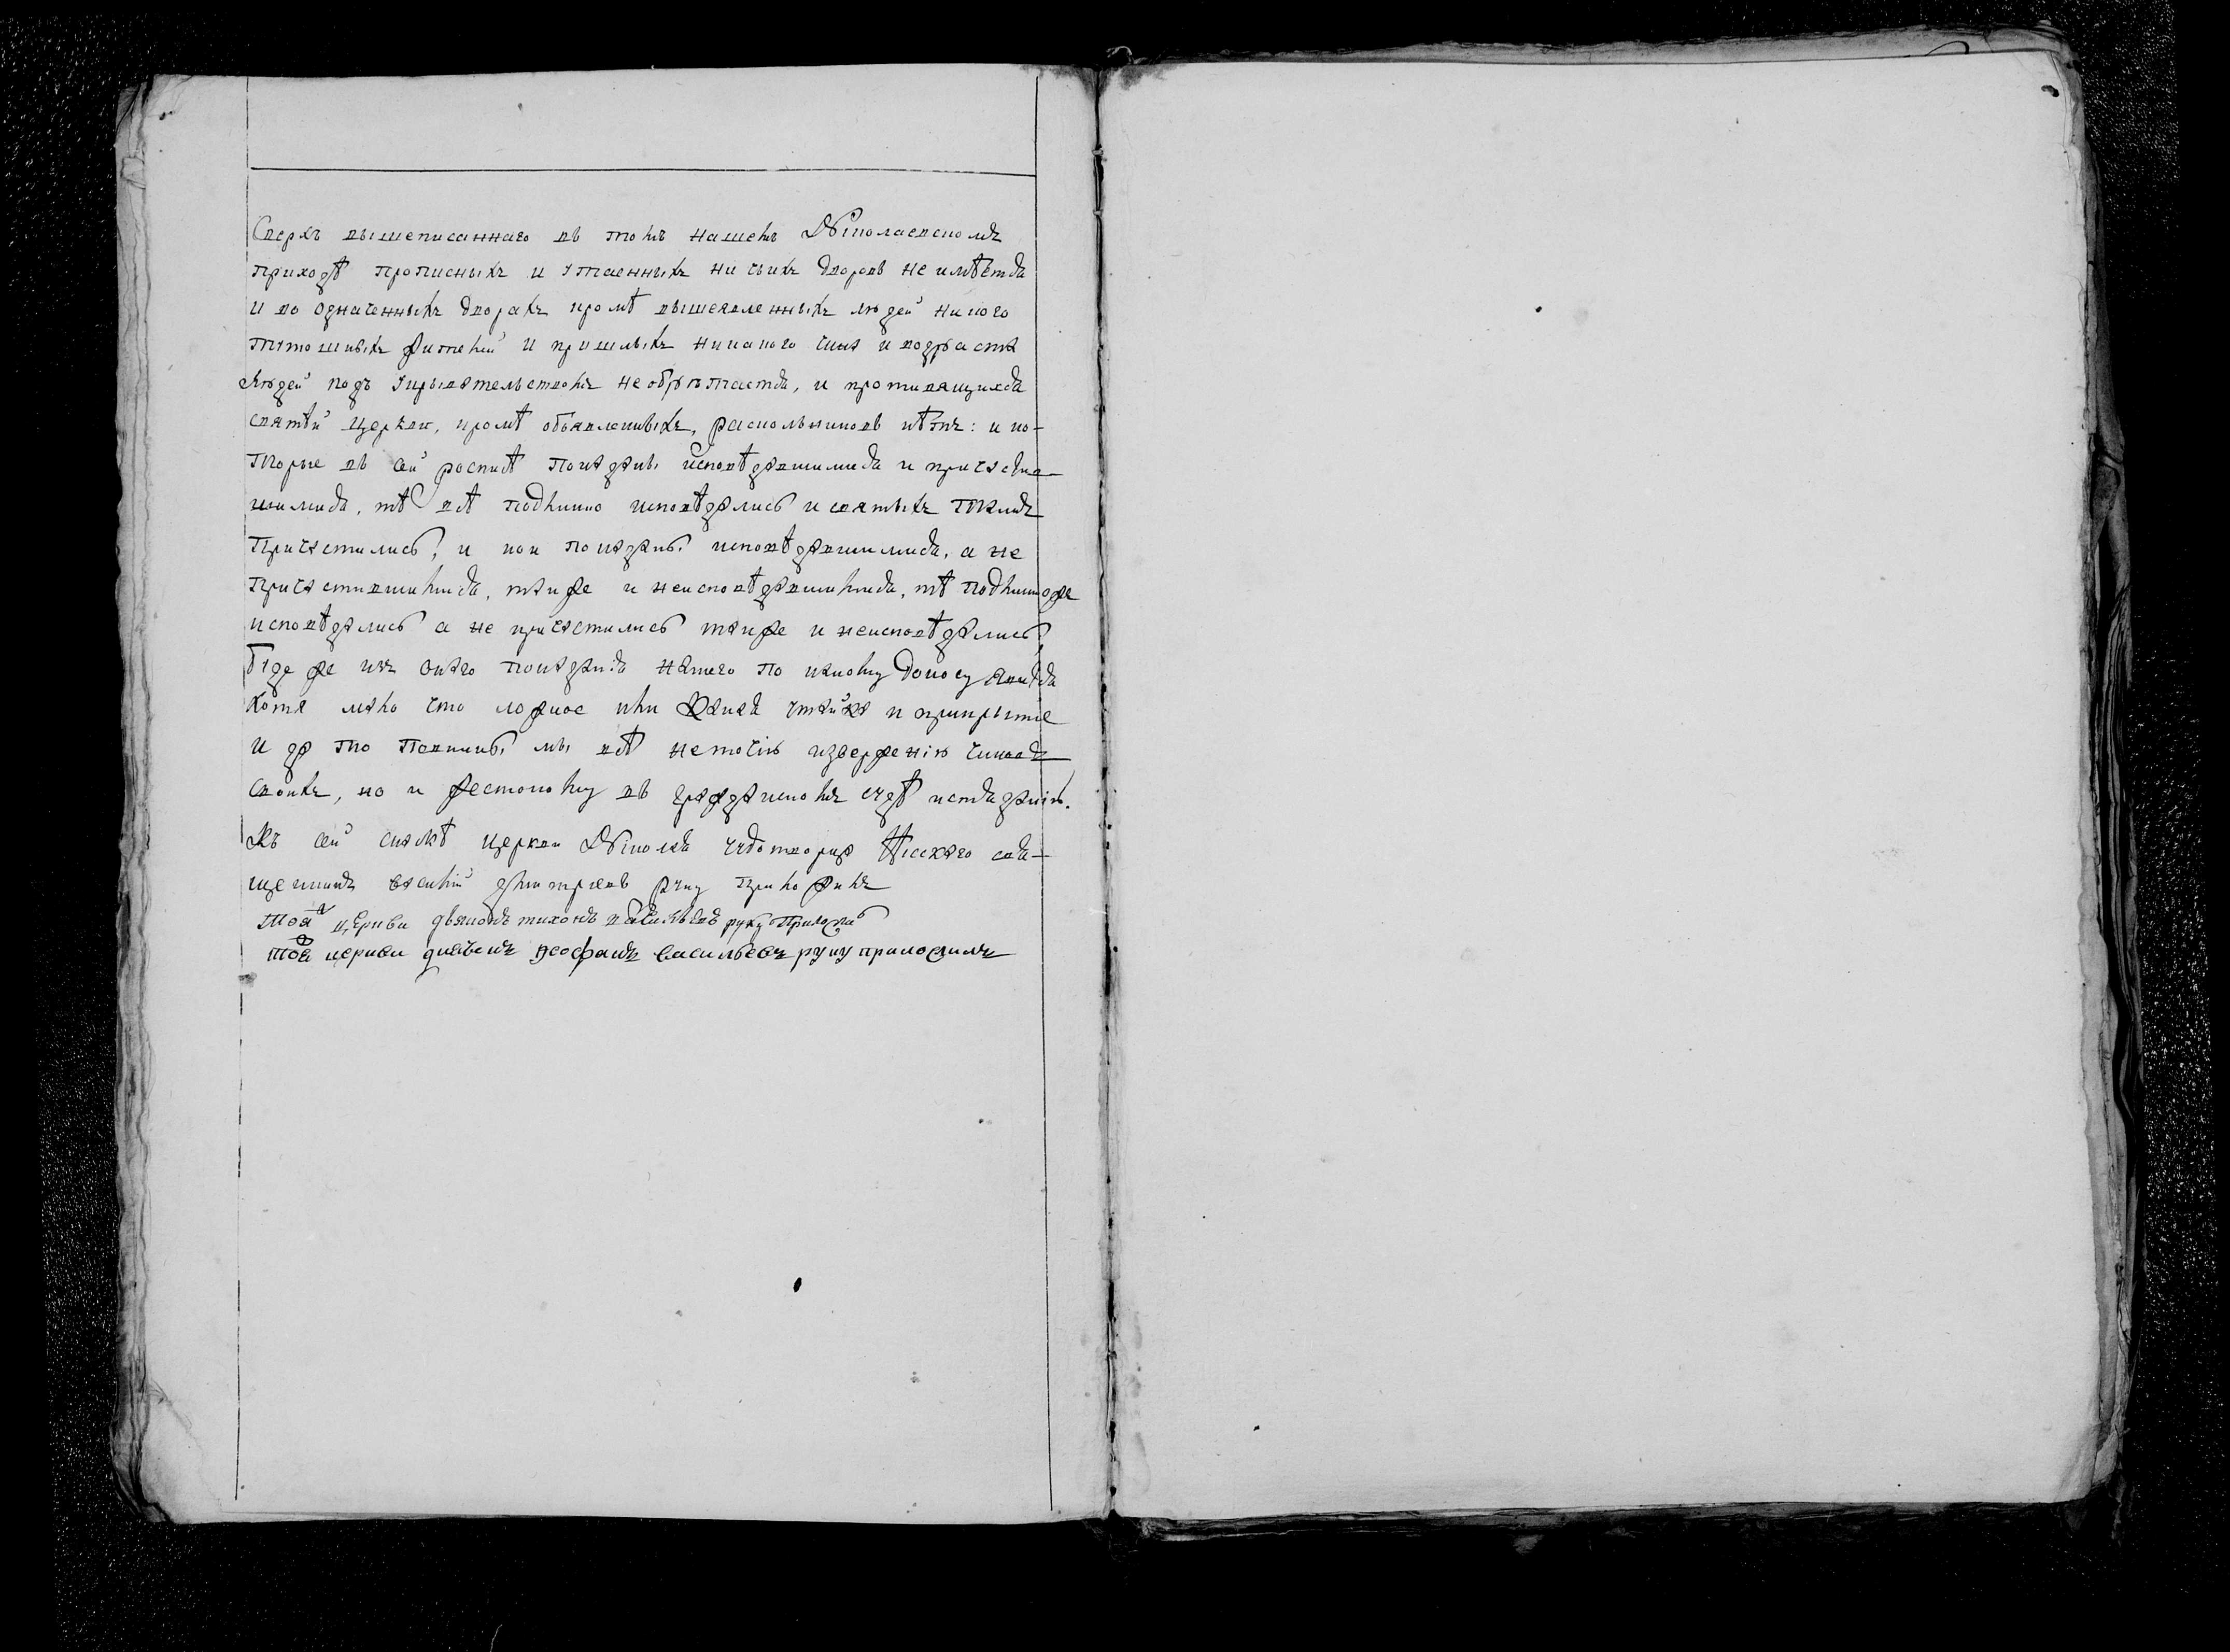 Сверхъ вышеписаннаго въ томъ нашемъ Николаевскомъ
приходѣ прописныхъ и утаенныхъ ни чьихъ дворовъ не имѣется
и во означенныхъ дворахъ кромѣ вышеявленныхъ людей никого
тутошныхъ жителей и пришлыхъ никакого чина и возраста
людей подъ укрывательствомъ не обрѣтается, и противящихся
святѣй церкви, кромѣ объявленныхъ, раскольниковъ нѣтъ: и ко-
торые въ сей росписѣ показаны исповѣдавшимися и причастив-
шимися, тѣ всѣ подлинно исповѣдались и святыхъ таинъ
причастились, и кои показаны исповѣдавшимися, а не
причастившимися, также и неисповѣдавшимися, тѣ подлинно же
исповѣдались а не причастились также и неисповѣдались,
буде же изъ онаго показанія нашего по какому доносу явится
хотя мало что ложное или какая утайка и прикрытие
и за то повинны мы всѣ не точію изверженію чиновъ
своихъ, но и жестокому въ гражданскомъ судѣ истязанію.
Къ сей сказкѣ церкви Николая чудотворца свя-
щенникъ василій димитріевъ руку приложилъ
тоя церкви дьяконъ тихонъ васильевъ руку приложилъ
тоя церкви дьячекъ феофанъ васильевъ руку приложилъ